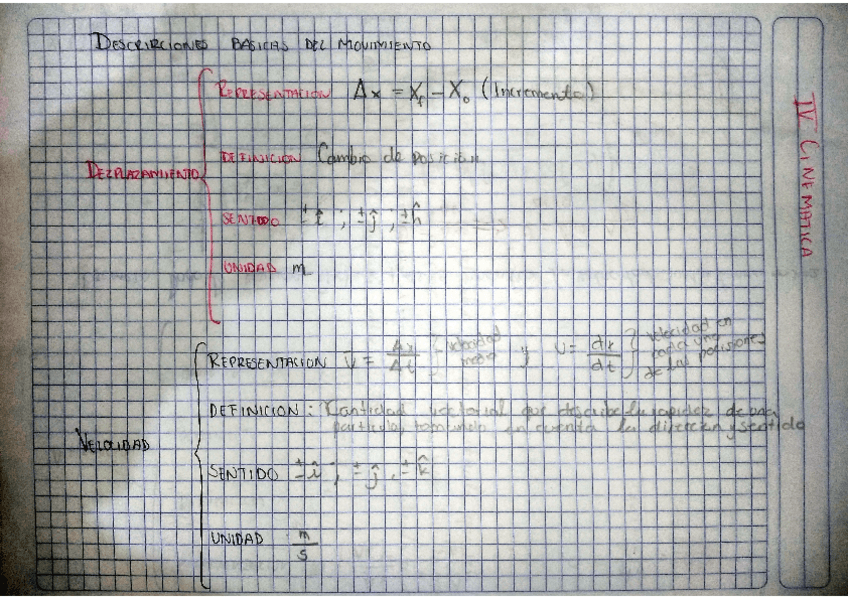 DESCRIPCIONES BASICAS DEL MOVIMIENTO
IV CINEMATICA
DEZPLAZAMIENTO
REPRESENTACION Δx = Xf − X₀ (Incremento)
DEFINICION Cambio de posicion
SENTIDO ± î ; ± ĵ ; ± k̂
UNIDAD m
VELOCIDAD
REPRESENTACION v̄ = Δx/Δt } velocidad media y v = dx/dt } velocidad en cada una de las posiciones
DEFINICION: Cantidad vectorial que describe la rapidez de una
particula, tomando en cuenta la direccion y sentido
SENTIDO ± î ; ± ĵ , ± k̂
UNIDAD m/s